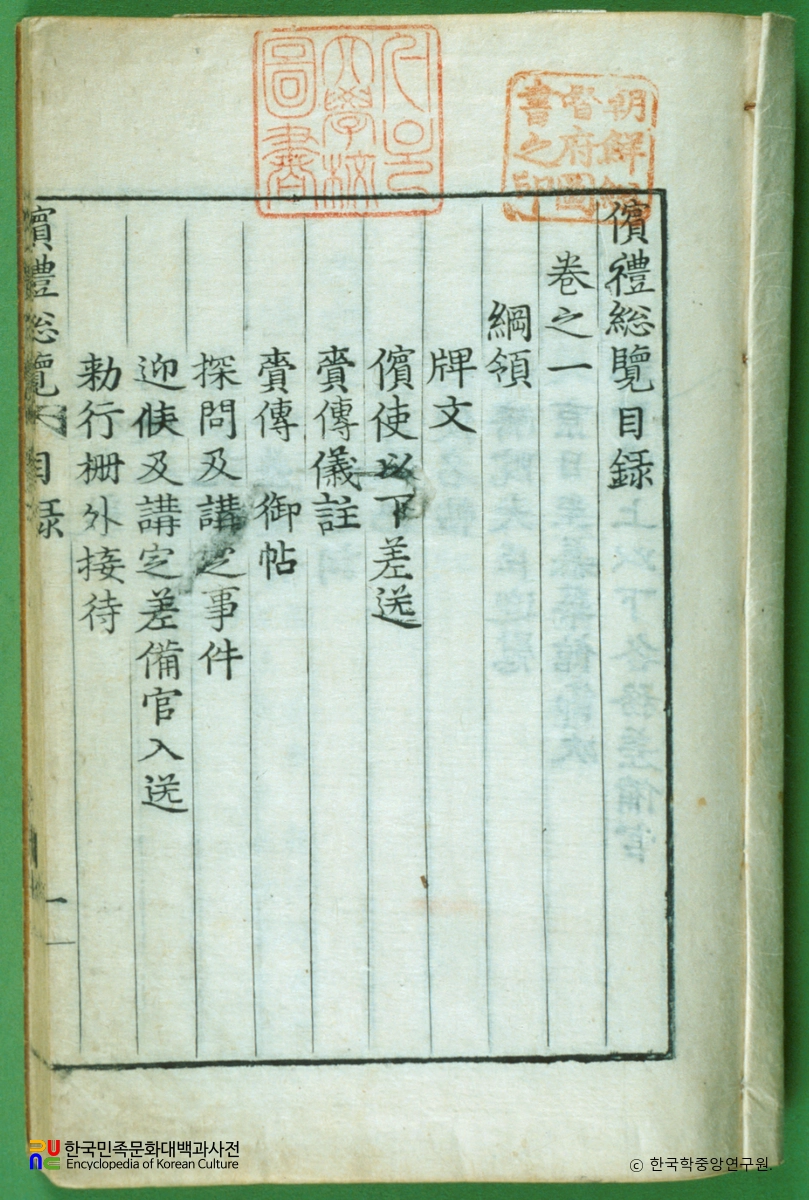 儐禮総覽目録
卷之一
綱領
牌文
儐使以下差送
賫傳儀註
賫傳 御帖
探問及講定事件
迎候及講定差備官入送
勅行柵外接待
儐禮総覽 目録
一
서울大學校圖書
朝鮮總督府圖書之印
한국민족문화대백과사전
Encyclopedia of Korean Culture
ⓒ 한국학중앙연구원.